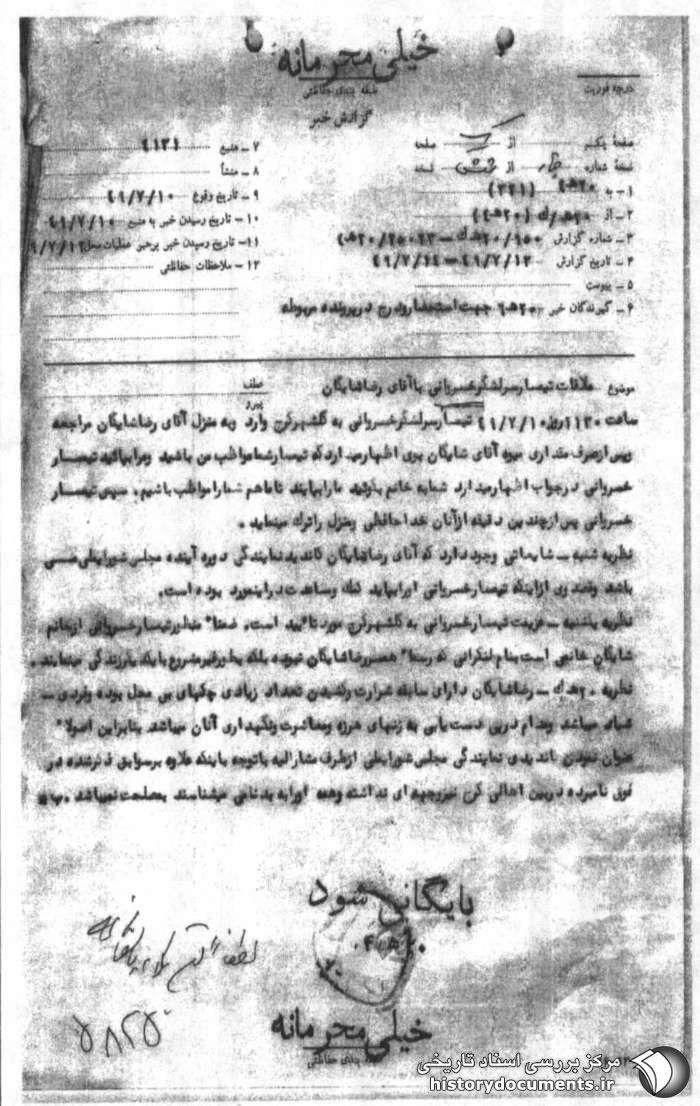 خیلی محرمانه
طبقه بندی حفاظتی
درجه فوریت
گزارش خبر
صفحه یکم از یک صفحه
نسخه شماره چهار از شش نسخه
۱ - به ۲۰ه‍ ۴ (۳۲۱)
۲ - از ۲۰ه‍/ک (۲۰ه‍ ۴)
۳ - شماره گزارش
۴ - تاریخ گزارش ۴۹/۷/۱۳ - ۴۹/۷/۱۴
۵ - پیوست
۶ - گیرندگان خبر ۲۰ه‍ ۴ جهت استحضار و درج در پرونده مربوطه
۷ - منبع ۴۱۳۱
۸ - منشأ
۹ - تاریخ وقوع ۴۹/۷/۱۰
۱۰ - تاریخ رسیدن خبر به منبع ۴۹/۷/۱۰
۱۱ - تاریخ رسیدن خبر به رهبر عملیات محل ۹/۷/۱۲
۱۲ - ملاحظات حفاظتی
موضوع ملاقات تیمسار سرلشگر خسروانی با آقای رضا شایگان
عطف
پیرو
ساعت ۱۱۳۰ روز ۴۹/۷/۱۰ تیمسار سرلشگر خسروانی به گلشهر کرج وارد و به منزل آقای رضا شایگان مراجعه
و پس از صرف مقداری میوه آقای شایگان بوی اظهار میدارد که تیمسار شما مواظب من باشید و مرا بپائید تیمسار
خسروانی در جواب اظهار میدارد شما به خانم بگوئید ما را بپایند تا ما هم شما را مواظب باشیم. سپس تیمسار
خسروانی پس از چندین دقیقه از آنان خداحافظی و منزل را ترک مینماید.
نظریه شنبه - شایعاتی وجود دارد که آقای رضا شایگان کاندید نمایندگی دوره آینده مجلس شورایملی می
باشد و قصد وی از اینکه تیمسار خسروانی او را بپاید کمک و مساعدت در اینمورد بوده است.
نظریه یکشنبه - عزیمت تیمسار خسروانی به گلشهر کرج مورد تأیید است. ضمناً منظور تیمسار خسروانی از خانم
شایگان خانمی است بنام لنکرانی که رسماً همسر رضا شایگان نبوده بلکه بطور غیر مشروع با یکدیگر زندگی مینمایند.
نظریه ۲۰ه‍ ک - رضا شایگان دارای سابقه شرارت و کشیدن تعداد زیادی چکهای بی محل بوده و فردی
عیاش میباشد و مدام در پی دست یابی به زنهای هرزه و معاشرت و نگهداری آنان میباشد بنابراین اصولاً
عنوان نمودن کاندیدی نمایندگی مجلس شورایملی از طرف مشارالیه با توجه باینکه علاوه بر سوابق ذکر شده در
فوق نامبرده در بین اهالی کرج نیز وجهه ای نداشته و همه او را به بدنامی میشناسند بمصلحت نمیباشد.
بایگانی شود
۲۰ه‍ ۴
خیلی محرمانه
طبقه بندی حفاظتی
مرکز بررسی اسناد تاریخی
historydocuments.ir